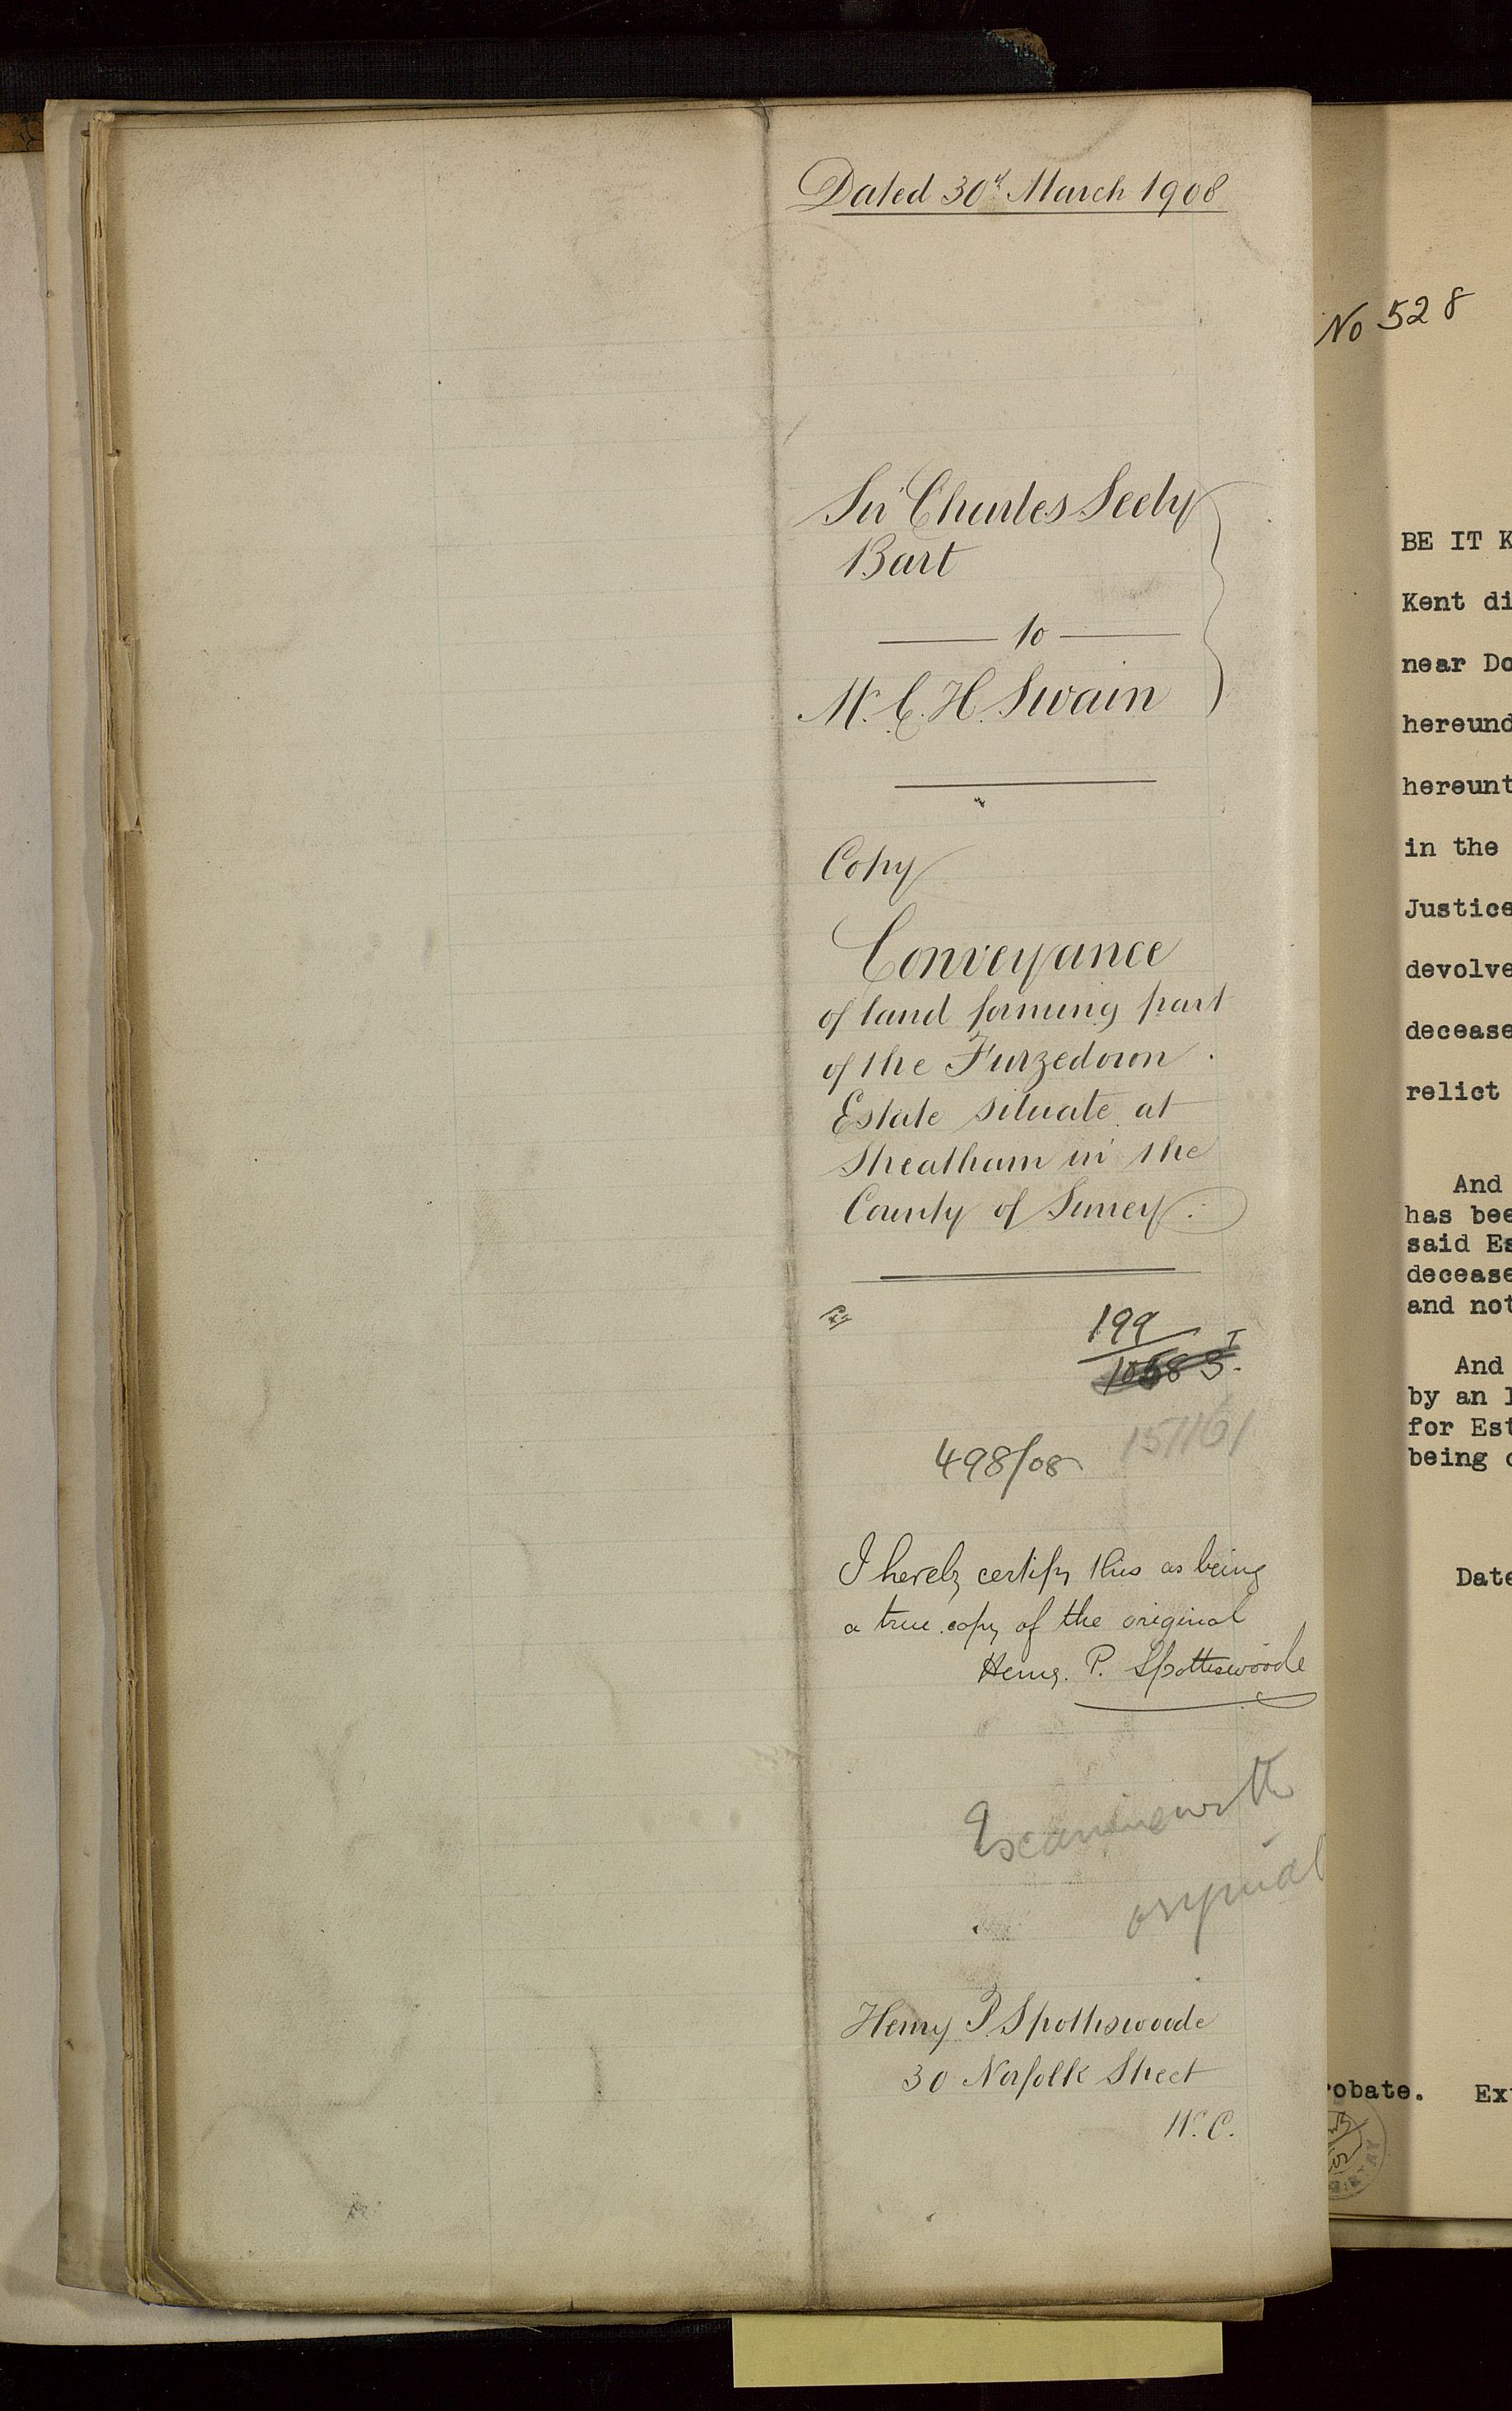 Dated 30th March 1908
Sir Charles Seely
Bart
to
Mr. C. H. Swain
Copy
Conveyance
of land forming part
of the Furzedown
Estate situate at
Streatham in the
County of Surrey
199
498/08
151161
I hereby certify this as being
a true copy of the original
Henry. P. Spottiswoode
Examine with
original
Henry P Spottiswoode
30 Norfolk Street
W.C.
No 528
BE IT K
Kent di
near Do
hereund
hereunt
in the
Justice
devolve
decease
relict
And
has bee
said Es
decease
and not
And
by an I
for Est
being c
Date
robate. Ex